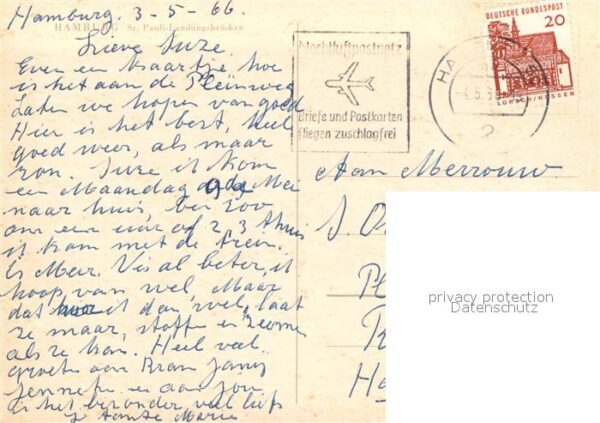 Hamburg. 3-5-66.
HAMBURG St. Pauli-Landungsbrücken
Lieve Suze.
Even een kaartje hoe
is het aan de Pleinweg
Laten we hopen van goed
Hier is het best, heel
goed weer, als maar
zon. Suze ik kom
een Maandag 9 de Mei
naar huis, ben zoo
om een uur of 2, 3 thuis
ik kom met de trein.
Is Meur. Vis al beter, ik
hoop van wel, Maar
dat ik dan wel, laat
ze maar, stoffen en zeemen
als ze kan. Heel veel
groeten aan Bram Jany
Jenneke en aan jou
in het bezonder veel liefs
Tante Marie
Nachtluftpostnetz
Briefe und Postkarten
fliegen zuschlagfrei
HA
2
DEUTSCHE BUNDESPOST
20
LORSCH/HESSEN
Aan Mevrouw
privacy protection
Datenschutz